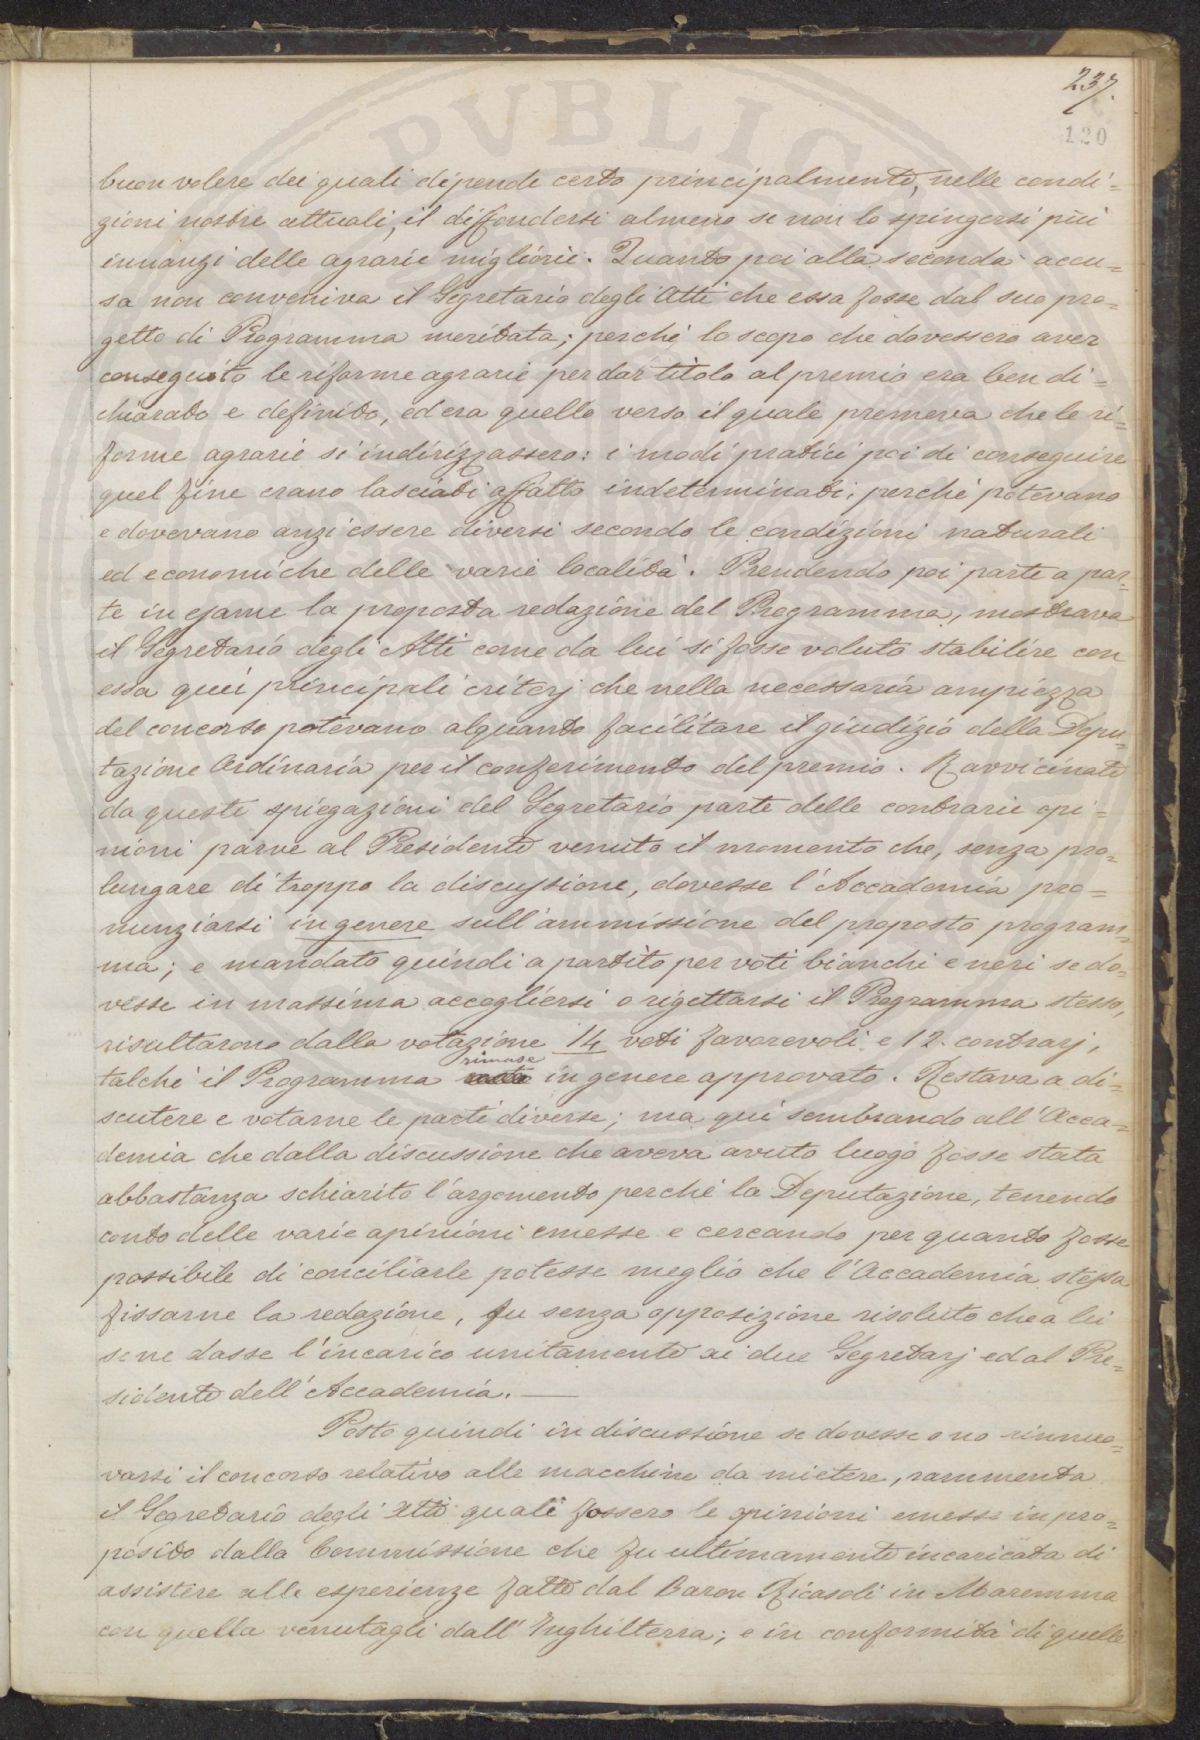 237.
120
PVBLIC
buon volere dei quali dipende certo principalmente, nelle condi-
zioni nostre attuali, il diffondersi almeno se non lo spingersi più
innanzi delle agrarie migliorie. Quanto poi alla seconda accu-
sa non conveniva il Segretario degli Atti che essa fosse dal suo pro-
getto di Programma meritata; perchè lo scopo che dovessero aver
conseguito le riforme agrarie per dar titolo al premio era ben di-
chiarato e definito, ed era quello verso il quale premeva che le ri-
forme agrarie si indirizzassero: i modi pratici poi di conseguire
quel fine erano lasciati affatto indeterminati, perchè potevano
e dovevano anzi essere diversi secondo le condizioni naturali
ed economiche delle varie località. Prendendo poi parte a par-
te in esame la proposta redazione del Programma, mostrava
il Segretario degli Atti come da lui si fosse voluto stabilire con
essa quei principali criterj che nella necessaria ampiezza
del concorso potevano alquanto facilitare il giudizio della Depu-
tazione Ordinaria per il conferimento del premio. Ravvicinate
da queste spiegazioni del Segretario parte delle contrarie opi-
nioni parve al Presidente venuto il momento che, senza pro-
lungare di troppo la discussione, dovesse l'Accademia pro-
nunziarsi in genere sull'ammissione del proposto program-
ma; e mandato quindi a partito per voti bianchi e neri se do-
vesse in massima accogliersi o rigettarsi il Programma stesso,
risultarono dalla votazione 14 voti favorevoli e 12 contrarj,
talchè il Programma rimase in genere approvato. Restava a di-
scutere e votarne le parti diverse; ma qui sembrando all'Acca-
demia che dalla discussione che aveva avuto luogo fosse stata
abbastanza schiarito l'argomento perchè la Deputazione, tenendo
conto delle varie opinioni emesse e cercando per quanto fosse
possibile di conciliarle potesse meglio che l'Accademia stessa
fissarne la redazione, fu senza opposizione risoluto che a lei
se ne dasse l'incarico unitamente ai due Segretarj ed al Pre-
sidente dell'Accademia.
Posto quindi in discussione se dovesse o no rinnuo-
varsi il concorso relativo alle macchine da mietere, rammenta
il Segretario degli Atti quali fossero le opinioni emesse in pro-
posito dalla Commissione che fu ultimamente incaricata di
assistere alle esperienze fatte dal Baron Ricasoli in Maremma
con quella venutagli dall'Inghilterra; e in conformità di quelle